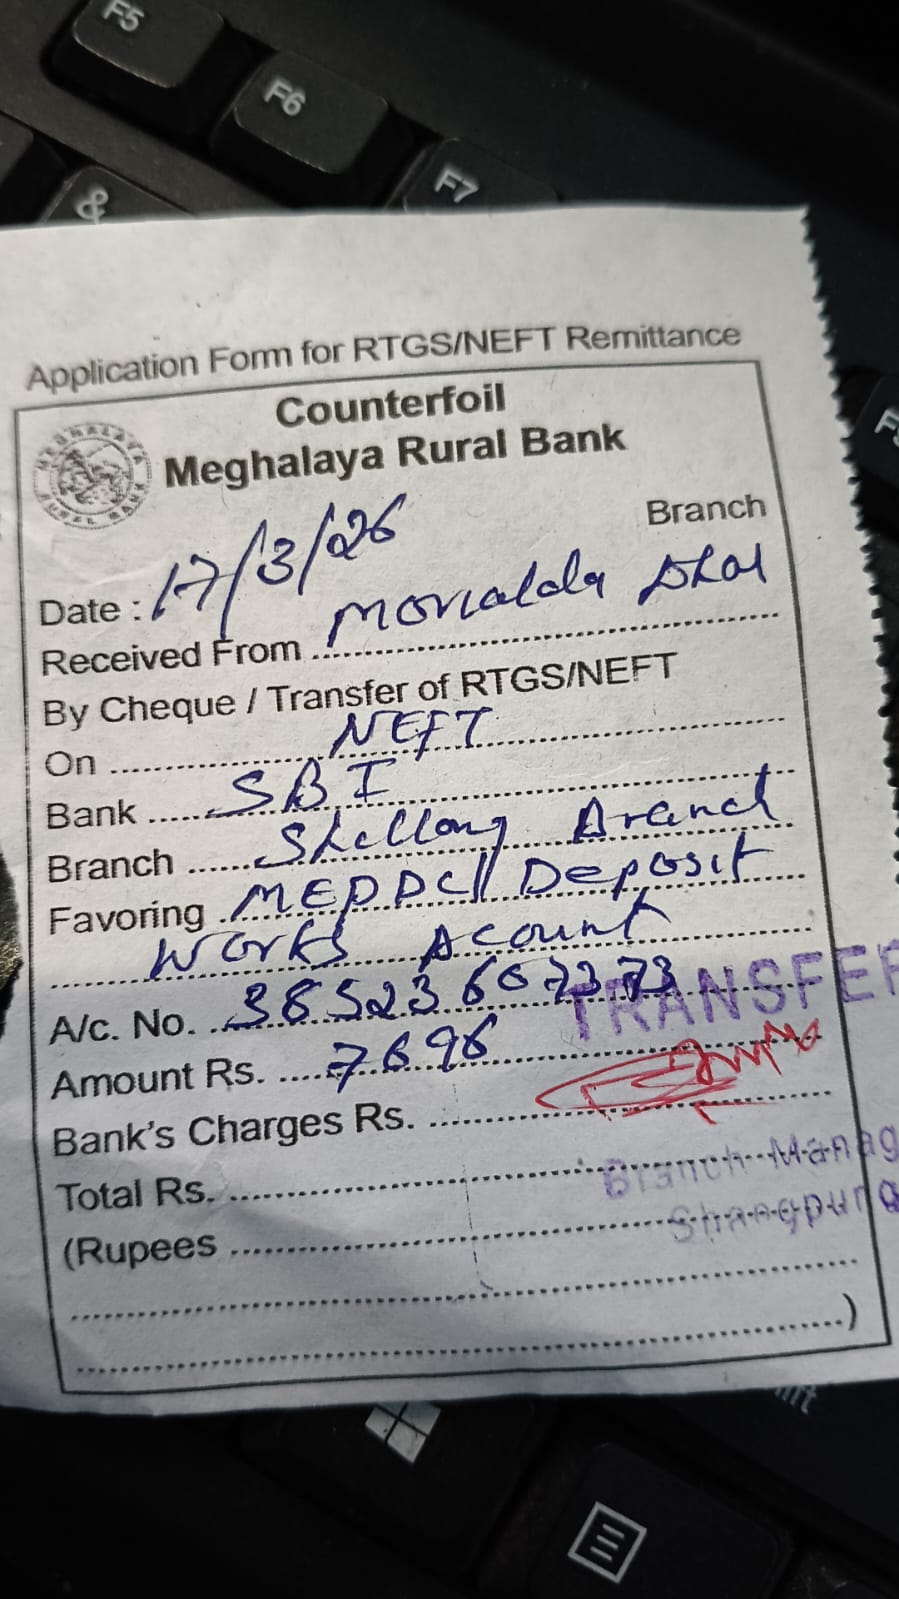 F5
F6
F7
&
Application Form for RTGS/NEFT Remittance
Counterfoil
Meghalaya Rural Bank
MEGHALAYA RURAL BANK
Branch
Date : 17/3/26
Received From Dhar
By Cheque / Transfer of RTGS/NEFT
On NEFT
Bank SBI
Branch Shillong Branch
Favoring Deposit
Works Acount
A/c. No.
TRANSFER
Amount Rs. 7696
Bank's Charges Rs.
Total Rs.
Branch Manag
(Rupees
Shangpung
)